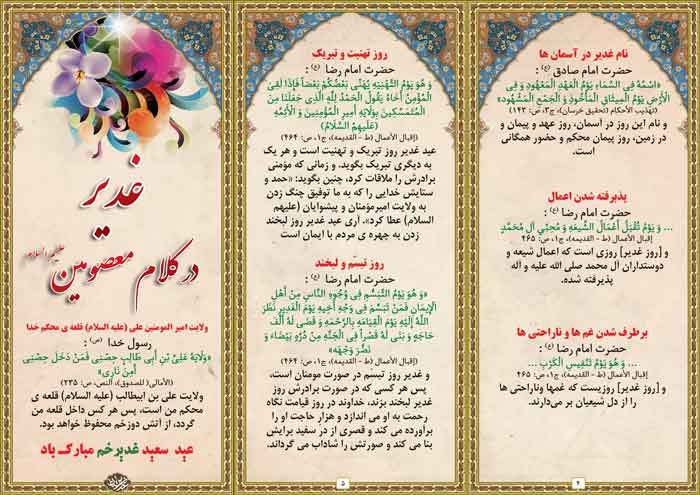 نام غدیر در آسمان ها
حضرت امام صادق (ع) :
«اسْمُهُ فِي السَّمَاءِ يَوْمُ الْعَهْدِ الْمَعْهُودِ وَ فِي
الْأَرْضِ يَوْمُ الْمِيثَاقِ الْمَأْخُوذِ وَ الْجَمْعِ الْمَشْهُودِ»
(تهذیب الأحکام (تحقیق خرسان)، ج۳، ص: ۱۴۳)
و نام این روز در آسمان، روز عهد و پیمان و
در زمین، روز پیمان محکم و حضور همگانی
است.
پذیرفته شدن اعمال
حضرت امام رضا (ع) :
... وَ يَوْمُ تُقْبَلُ أَعْمَالُ الشِّيعَةِ وَ مُحِبِّي آلِ مُحَمَّدٍ
إقبال الأعمال (ط - القدیمه)، ج۱، ص: ۴۶۵
و [روز غدیر] روزی است که اعمال شیعه و
دوستداران آل محمد صلی الله علیه و آله
پذیرفته شده.
برطرف شدن غم ها و ناراحتی ها
حضرت امام رضا (ع) :
... وَ هُوَ يَوْمُ تَنْفِيسِ الْكَرْبِ ...
إقبال الأعمال (ط - القدیمه)، ج۱، ص: ۴۶۵
و [روز غدیر] روزیست که غمها وناراحتی ها
را از دل شیعیان بر می‌دارند.
۴
روز تهنیت و تبریک
حضرت امام رضا (ع) :
وَ هُوَ يَوْمُ التَّهْنِيَةِ يُهَنِّي بَعْضُكُمْ بَعْضاً فَإِذَا لَقِيَ
الْمُؤْمِنُ أَخَاهُ يَقُولُ الْحَمْدُ لِلَّهِ الَّذِي جَعَلَنَا مِنَ
الْمُتَمَسِّكِينَ بِوَلَايَةِ أَمِيرِ الْمُؤْمِنِينَ وَ الْأَئِمَّةِ
(عَلَيْهِمُ السَّلَامُ)
(إقبال الأعمال (ط - القدیمه)، ج۱، ص: ۴۶۴)
عید غدیر روز تبریک و تهنیت است و هر یک
به دیگری تبریک بگوید. و زمانی که مؤمنی
برادرش را ملاقات کرد، چنین بگوید: «حمد و
ستایش خدایی را که به ما توفیق چنگ زدن
به ولایت امیرمؤمنان و پیشوایان (علیهم
السلام) عطا کرد». آری عید غدیر روز لبخند
زدن به چهره ی مردم با ایمان است
روز تبسّم و لبخند
حضرت امام رضا (ع) :
«وَ هُوَ يَوْمُ التَّبَسُّمِ فِي وُجُوهِ النَّاسِ مِنْ أَهْلِ
الْإِيمَانِ فَمَنْ تَبَسَّمَ فِي وَجْهِ أَخِيهِ يَوْمَ الْغَدِيرِ نَظَرَ
اللَّهُ إِلَيْهِ يَوْمَ الْقِيَامَةِ بِالرَّحْمَةِ وَ قَضَى لَهُ أَلْفَ
حَاجَةٍ وَ بَنَى لَهُ قَصْراً فِي الْجَنَّةِ مِنْ دُرَّةٍ بَيْضَاءَ وَ
نَضَّرَ وَجْهَهُ»
(إقبال الأعمال (ط - القدیمه)، ج۱، ص: ۴۶۴)
و غدیر روز تبسّم در صورت مومنان است،
پس هر کسی که در صورت برادرش روز
غدیر لبخند بزند، خداوند در روز قیامت نگاه
رحمت به او می اندازد و هزار حاجت او را
برآورده می کند و قصری از درّ سفید برایش
بنا می کند و صورتش را شاداب می گرداند.
۵
غدیر
در کلام معصومین علیهم السلام
ولایت امیر المومنین علی (علیه السلام) قلعه ی محکم خدا
رسول خدا (ص) :
«وَلَايَةُ عَلِيِّ بْنِ أَبِي طَالِبٍ حِصْنِي فَمَنْ دَخَلَ حِصْنِي
أَمِنَ نَارِي»
(الأمالي( للصدوق)، النص، ص: ۲۳۵)
ولایت علی بن ابیطالب (علیه السلام) قلعه ی
محکم من است، پس هر کس داخل قلعه من
گردد، از آتش دوزخم محفوظ خواهد بود.
عید سعید غدیرخم مبارک باد